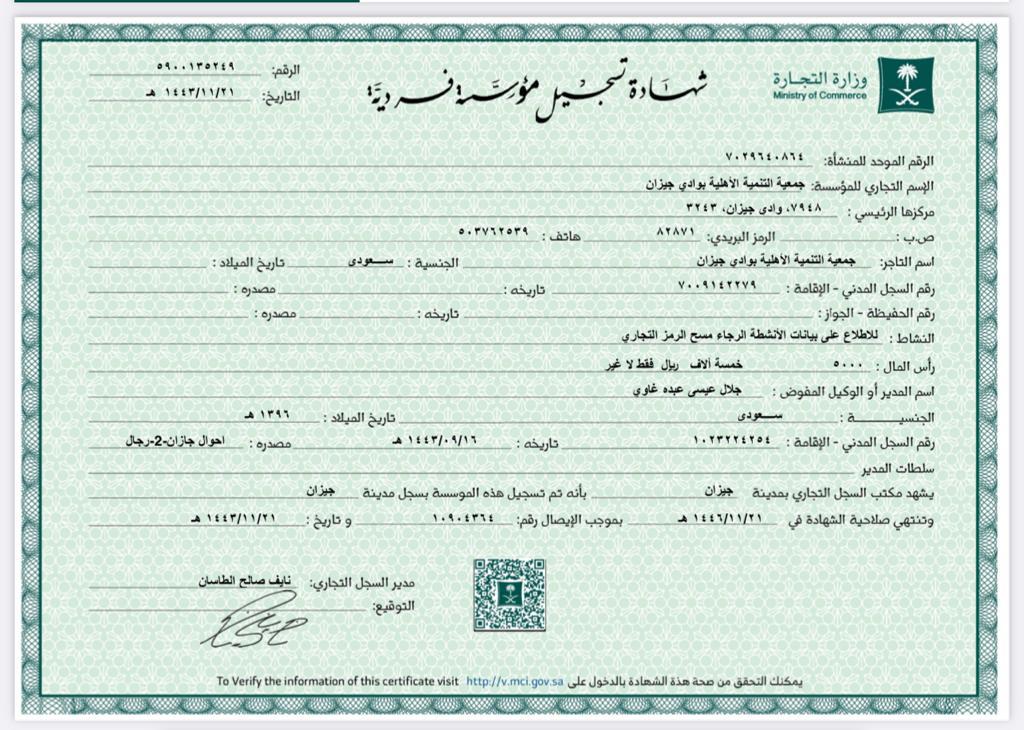 وزارة التجارة
Ministry of Commerce
شهادة تسجيل مؤسسة فردية
الرقم: ٥٩٠٠١٣٥٢٤٩
التاريخ: ١٤٤٣/١١/٢١ هـ
الرقم الموحد للمنشأة: ٧٠٢٩٦٤٠٨٦٤
الإسم التجاري للمؤسسة: جمعية التنمية الأهلية بوادي جيزان
مركزها الرئيسي : ٧٩٤٨، وادي جيزان، ٣٢٤٣
ص.ب : الرمز البريدي: ٨٢٨٧١ هاتف : ٥٠٣٧٦٢٥٣٩
اسم التاجر: جمعية التنمية الأهلية بوادي جيزان الجنسية : سعودي تاريخ الميلاد :
رقم السجل المدني - الإقامة : ٧٠٠٩١٤٢٢٧٩ تاريخه : مصدره :
رقم الحفيظة - الجواز : تاريخه : مصدره :
النشاط : للاطلاع على بيانات الأنشطة الرجاء مسح الرمز التجاري
رأس المال : ٥٠٠٠ خمسة آلاف ريال فقط لا غير
اسم المدير أو الوكيل المفوض : جلال عيسى عبده غاوي
الجنسية : سعودي تاريخ الميلاد : ١٣٩٦ هـ
رقم السجل المدني - الإقامة : ١٠٢٣٢٢٤٢٥٤ تاريخه : ١٤٤٣/٠٩/١٦ هـ مصدره : احوال جازان-2-رجال
سلطات المدير
يشهد مكتب السجل التجاري بمدينة جيزان بأنه تم تسجيل هذه الموسسة بسجل مدينة جيزان
وتنتهي صلاحية الشهادة في ١٤٤٦/١١/٢١ هـ بموجب الإيصال رقم: ١٠٩٠٤٣٦٤ و تاريخ : ١٤٤٣/١١/٢١ هـ
مدير السجل التجاري: نايف صالح الطاسان
التوقيع:
يمكنك التحقق من صحة هذة الشهادة بالدخول على http://v.mci.gov.sa To Verify the information of this certificate visit